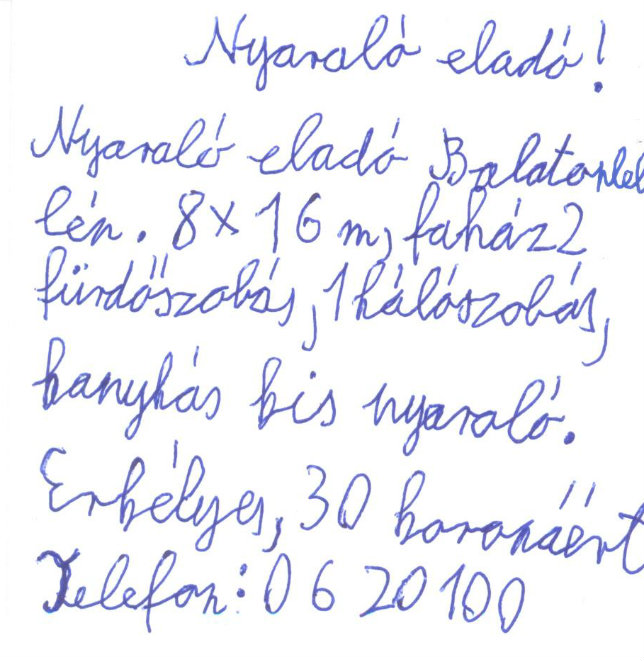 Nyaraló eladó!
Nyaraló eladó Balatonlel
lén. 8x16 m, faház 2
fürdőszobás, 1 hálószobás,
konyhás kis nyaraló.
Erkélyes, 30 koronáért
Telefon: 06 20 100